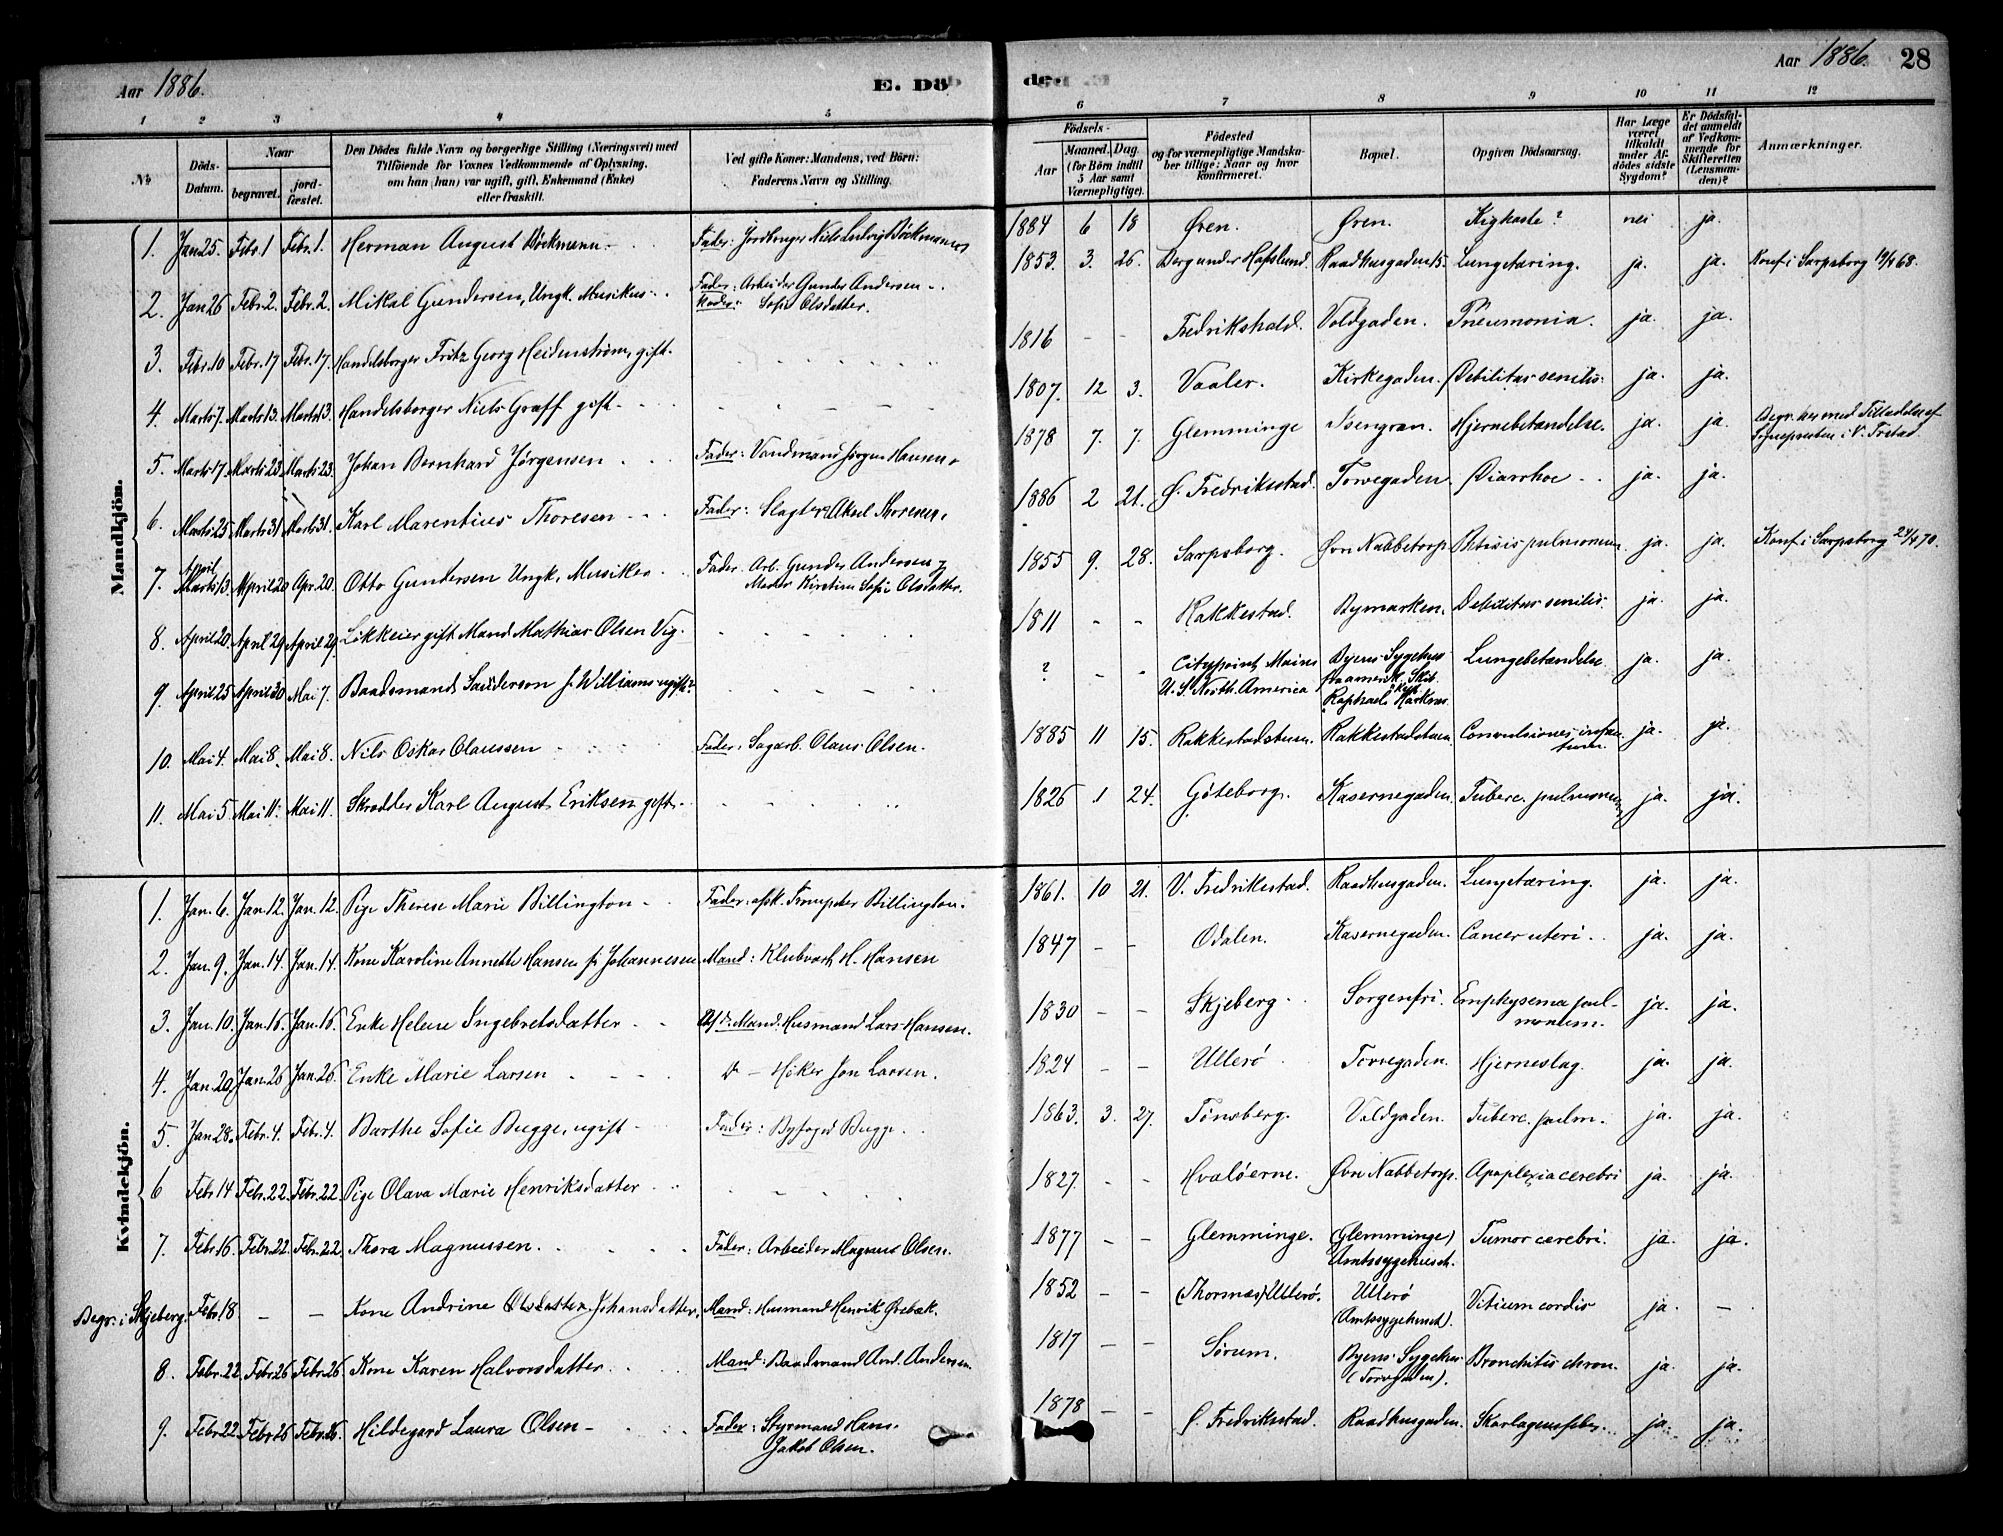 Aar 1886.
E. Dö
Aar 1886.
28
1 2 3 4 5
6 7 8 9 10 11 12
No
Döds-Datum.
Naar
begravet.
jord-fæstet.
Den Dödes fulde Navn og borgerlige Stilling (Næringsvei) med
Tilföiende for Voxnes Vedkommende af Oplysning,
om han (hun) var ugift, gift, Enkemand (Enke)
eller fraskilt.
Ved gifte Koner: Mandens, ved Börn:
Faderens Navn og Stilling.
Födsels-
Aar
Maaned. Dag.
(for Börn indtil
5 Aar samt
Værnepligtige).
Födested
og for værnepligtige Mandska-
ber tillige: Naar og hvor
konfirmeret.
Bopæl.
Opgiven Dödsaarsag.
Har Læge
været
tilkaldt
under Af-
dödes sidste
Sygdom?
Er Dödsfal-
det anmeldt
af Vedkom-
mende for
Skifteretten
(Lensman-
den)?
Anmærkninger.
Mandkjön.
1. Jan 25. Febr. 1 Febr. 1. Herman August Böckmann Fader: Jordbruger Niels Ludvig Böckmann 1884 6 18 Øren. Øren. Kighoste? nei ja.
2. Jan 26 Febr. 2. Febr. 2. Mikal Gundersen, Ungk. Musikus Fader: Arbeider Gunder Andersen
Moder: Sofie Olsdatter. 1853. 3. 26. Borg under Hafslund. Raadhusgaden 15. Lungetæring. ja. ja. Konf i Sarpsborg 68.
3. Febr. 10 Febr. 17 Febr. 17. Handelsborger Fritz Georg Heidenstrøm, gift. 1816 - - Fredrikshald. Voldgaden. Pneumonia. ja. ja.
4. Marts 7. Marts 13. Marts 13. Handelsborger Niels Graff gift 1807. 12 3. Vaaler. Kirkegaden. Debilitas senilis. ja. ja.
5. Marts 17. Marts 23. Marts 23. Johan Bernhard Jörgensen Fader: Vandmand Jörgen Hansen. 1878 7. 7. Glemminge Isengran. Hjernebetændelse. ja. ja. Begr. her med Tilladelse af
Sognepresten i V. Fr.stad.
6. Marts 25 Marts 31 Marts 31. Karl Marentius Thoresen Fader: Slagter Aksel Thoresen. 1886 2 21. Ø. Fredriksstad. Torvegaden. Diarrhoe ja. ja.
7. April Marts 13. April 20 Apr. 20. Otto Gundersen Ungk. Musiker Fader. Arb. Gunder Andersen
Moder Kirstine Sofie Olsdatter. 1855 9. 28. Sarpsborg. Øvn Nabbetorp Phtisis pulmonum. ja. ja. Konf i Sarpsborg 70.
8. April 20. April 29 April 29. Likkeier gift Mand Mathias Olsen Vig. 1811 - - Rakkestad. Bymarken. Debilitas senilis. ja. ja.
9. April 25 April 30 Mai 7. Baadsmand J. Williams ugift? ? - - Citypoint, Maine
U. S. North. America Byens Sygehus
fra amerik. Skib
Raphael Lungebetændelse ja. ja.
10. Mai 4. Mai 8. Mai 8. Nils Oskar Olaussen Fader: Sagarb. Olaus Olsen. 1885 11 15. Rakkestadstuen. Rakkestadstuen. Convulsiones infan-
tum. ja. ja.
11. Mai 5 Mai 11. Mai 11. Skrædder Karl August Eriksen gift 1826 1 24. Göteborg. Kasernegaden. Tuberc. pulmonum ja. ja.
Kvindekjön.
1. Jan. 6. Jan. 12. Jan. 12. Pige Therese Marie Billington Fader: afsk. Trompeter Billington. 1861. 10 21. V. Fredrikstad. Raadhusgaden. Lungetæring. ja. ja.
2. Jan. 9. Jan. 14. Jan. 14. Kone Karoline Annette Hansen f. Johannesen Mand: Klubvært H. Hansen 1847 - - Odalen. Kasernegaden. Cancer uteri. ja. ja.
3. Jan. 10. Jan. 16. Jan. 16. Enke Helene Ingebretsdatter Afd. Mand. Husmand Lars Hansen. 1830 - - Skjeberg. Sorgenfri. Emphysema pul-
monum. ja. ja.
4. Jan. 20 Jan. 26 Jan. 26. Enke Marie Larsen Høker Jon Larsen. 1824 - - Ullerø Torvegaden. Hjerneslag. ja. ja.
5. Jan. 28. Febr. 4. Febr. 4. Barthe Sofie Bugge, ugift Fader: Byfoged Bugge. 1863. 3. 27. Tønsberg. Voldgaden. Tuberc. pulm. ja. ja.
6 Febr 14 Febr. 22. Febr. 22. Pige Olava Marie Henriksdatter 1827. - - Hvaløerne. Øvn Nabbetorp. Apoplexia cerebri ja. ja.
7. Febr. 16. Febr. 22. Febr. 22. Thora Magnussen. Fader: Arbeider Magnus Olsen. 1877 - - Glemminge. (Glemminge)
Amtssygehuset. Tumor cerebri. ja. ja.
Begr. i Skjeberg. Febr. 18 - - Kone Andrine Olsdatter Johansdatter. Mand: Husmand Henrik Ørebæk. 1852 - - (Thornæs) Ullerø. Ullerø
(Amtssygehuset). Vitium cordis ja. -
8. Febr. 22. Febr. 26 Febr. 26 Kone Karen Halvorsdatter Mand: Baadmand And. Andersen. 1817 - - Sørum. Byens Sygehus
(Torvgaden). Bronchitis chron. ja. ja.
9. Febr. 22. Febr. 26 Febr. 26. Hildegard Laura Olsen Fader: Styrmand Hans
Jakob Olsen. 1878 - - Ø. Fredriksstad. Raadhusgaden. Skarlagensfeber. ja. ja.